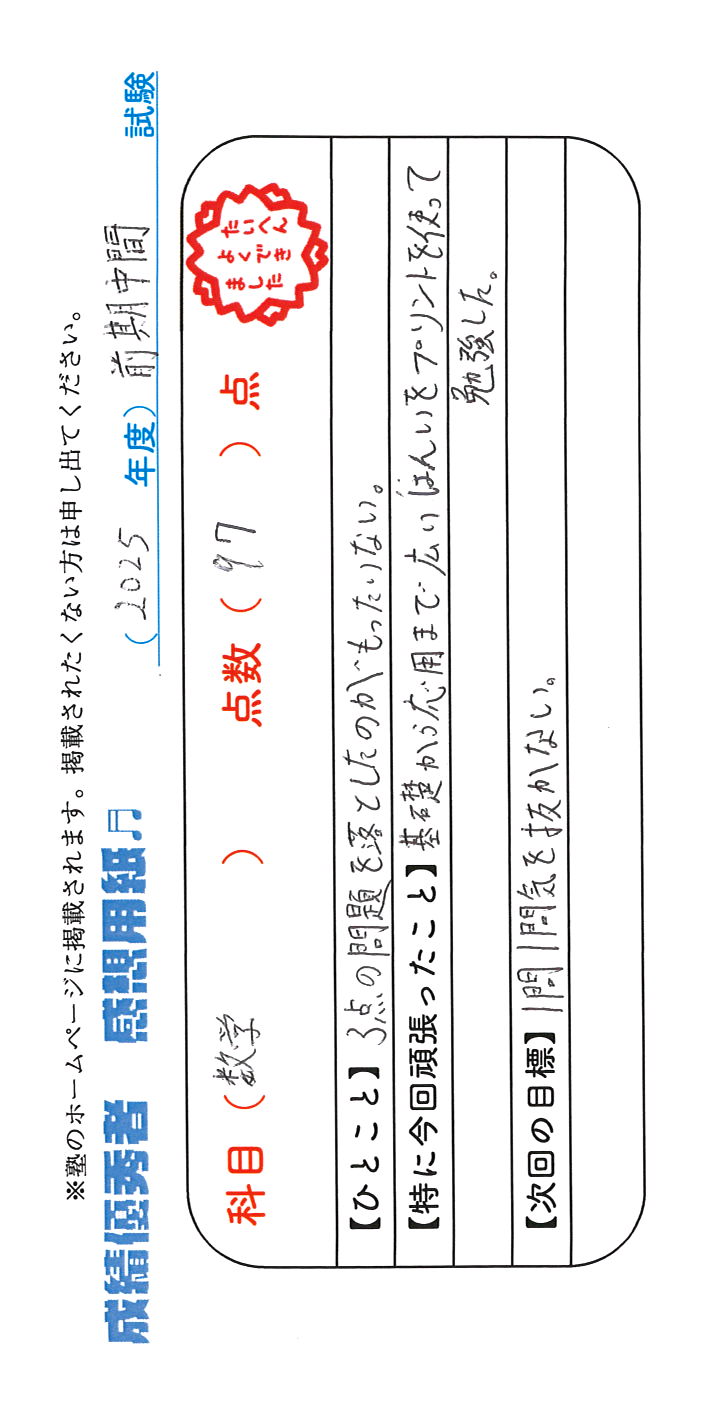 ※塾のホームページに掲載されます。掲載されたくない方は申し出てください。
成績優秀者 感想用紙♫ (2025 年度) 前期中間 試験
科目 (数学) 点数 (97) 点
たいへん
よくでき
ました
【ひとこと】3点の問題を落としたのがもったいない。
【特に今回頑張ったこと】基礎から応用まで広いはんいをプリントを使って
勉強した。
【次回の目標】1問1問気を抜かない。